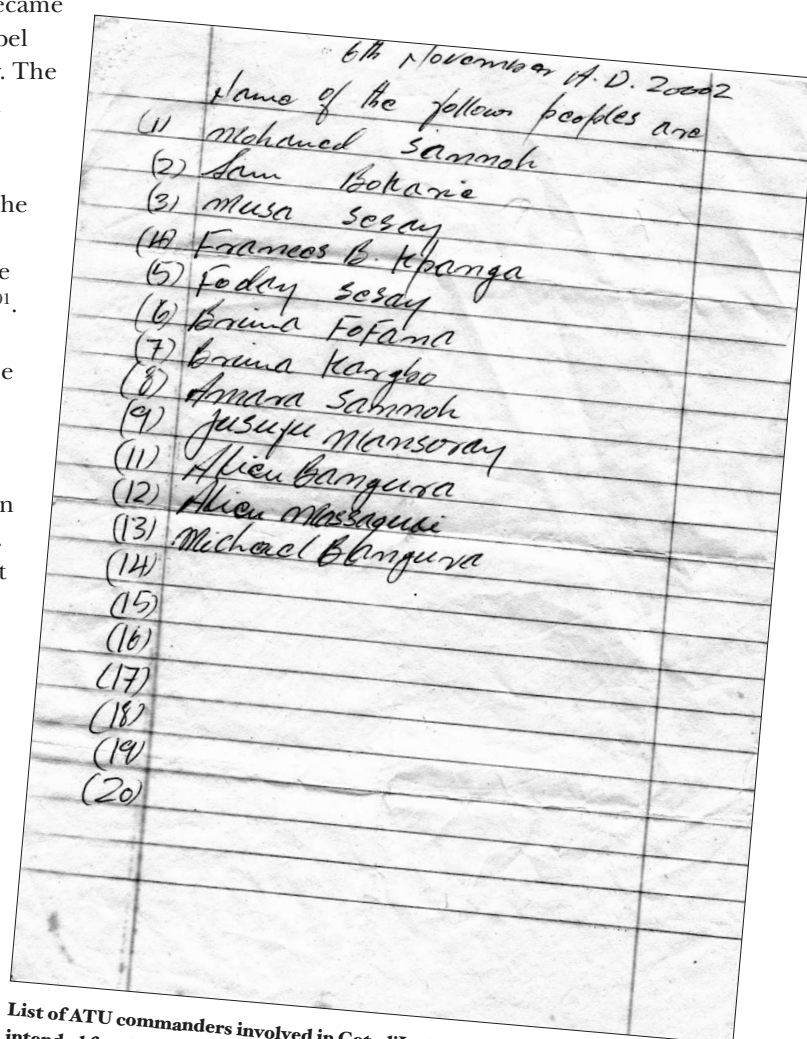 ecame
bel
. The
he
e
01.
e
n
.
t
6th November A.D. 20002
Name of the follow peoples are
(1) Mohamed Sannoh
(2) Sam Bokarie
(3) Musa Sesay
(4) Frances B. Kpanga
(5) Foday Sesay
(6) Brima FoFana
(7) Brima Kargbo
(8) Amara Sannoh
(9) Jusufu Mansoray
(11) Alieu Bangura
(12) Alieu Massaquoi
(13) Michael Bangura
(14)
(15)
(16)
(17)
(18)
(19)
(20)
List of ATU commanders involved in